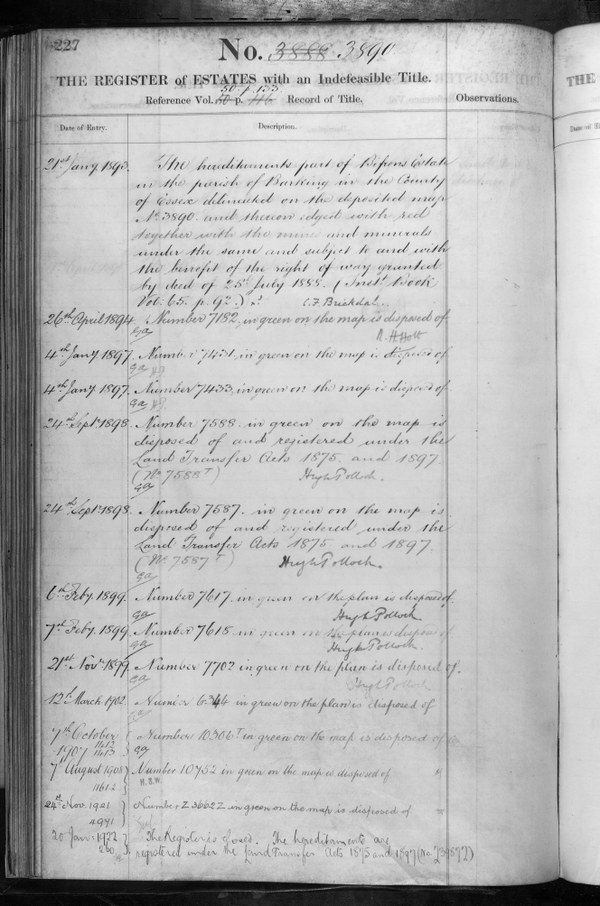 227
No. 3888 3890
THE REGISTER of ESTATES with an Indefeasible Title.
50 p. 133
Reference Vol. 50 p. 416 Record of Title.
Observations.
Date of Entry.
Description.
21st Jany 1893. The hereditaments part of Bifrons Estate
in the parish of Barking in the County
of Essex delineated on the deposited map
No. 3890 and thereon edged with red
together with the mines and minerals
under the same and subject to and with
the benefit of the right of way granted
by deed of 25th July 1888. (Inst. Book
Vol. 65. p. 92.)
C. F. Brickdale
26th April 1894 Number 7182, in green on the map is disposed of
Holt
4th Jany 1897. Number 7431, in green on the map is disposed of
ga
4th Jany 1897. Number 7433, in green on the map is disposed of
ga
24th Septr 1898. Number 7588 in green on the map is
disposed of and registered under the
Land Transfer Acts 1875 and 1897.
(No. 7588 T) Hugh Pollock.
ga
24th Septr 1898. Number 7587. in green on the map is
disposed of and registered under the
Land Transfer Acts 1875 and 1897.
(No. 7587 T) Hugh Pollock.
ga
6th Feby. 1899. Number 7617. in green on the plan is disposed of.
ga Hugh Pollock.
7th Feby. 1899. Number 7618. in green on the plan is disposed of
ga Hugh Pollock.
21st Novr 1899. Number 7702 in green on the plan is disposed of.
Hugh Pollock
12th March 1902. Number 6344 in green on the plan is disposed of
7th October Number 10306 T in green on the map is disposed of
1907 1412 1413 ga
7th August 1908 Number 10752 in green on the map is disposed of
11612 H.B.W.
24th Nov. 1921 Number Z 3662 Z in green on the map is disposed of
2941
20 Jan 1922 The Register is closed. The hereditaments are
registered under the Land Transfer Acts 1875 and 1897 (No.